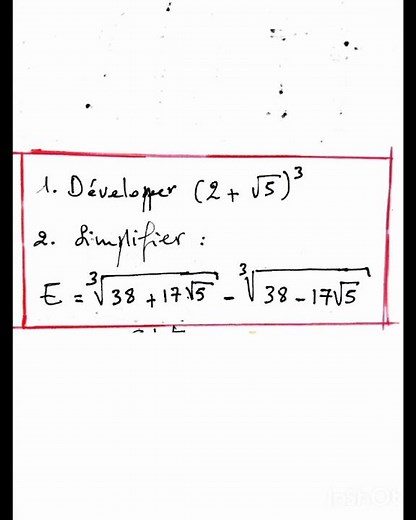 1. Développer (2 + √5)³
2. Simplifier :
E = ∛(38 + 17√5) - ∛(38 - 17√5)